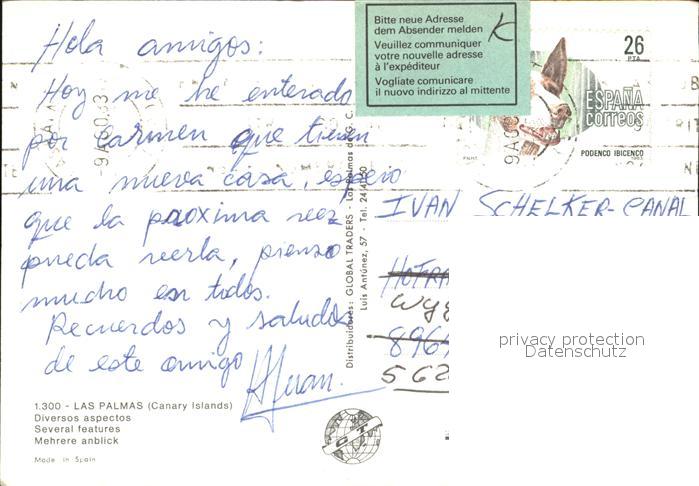 Hola amigos:
Hoy me he enterado
por Carmen que tienen
una nueva casa, espero
que la proxima vez
pueda verla, pienso
mucho en todos.
Recuerdos y saludos
de este amigo
Juan.
1.300 - LAS PALMAS (Canary Islands)
Diversos aspectos
Several features
Mehrere anblick
Made in Spain
Distribuidores: GLOBAL TRADERS - Las Palmas de G. C.
Luis Antúnez, 57 - Tel.
GTL
Bitte neue Adresse
dem Absender melden
Veuillez communiquer
votre nouvelle adresse
à l'expéditeur
Vogliate comunicare
il nuovo indirizzo al mittente
K
26
PTA
ESPAÑA
correos
PODENCO IBICENCO
1983
IVAN SCHELKER-CANAL
HOFRA
Wyg
896
562
privacy protection
Datenschutz